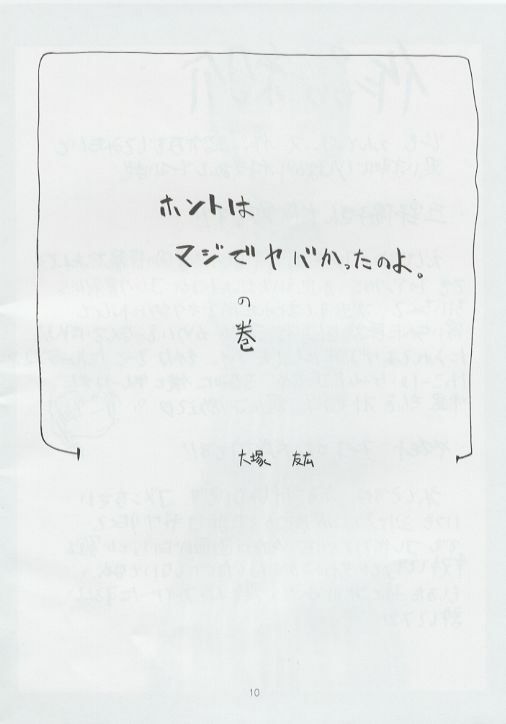 ホントは
マジでヤバかったのよ。
の
巻
大塚 友広
10